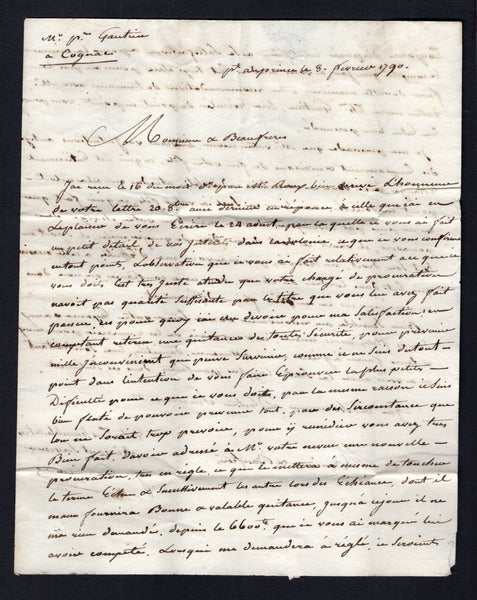 Mr. pre. Gautier
à Cognac
Pt. au prince le 8. fevrier 1790.
Monsieur & Beaufrere
J'ai recu le 16 du mois Mr. Roux L'honneur
de votre lettre 20. 8bre année derniere en reponce à celle que j'ai eu
Le plaisir de vous Ecrire le 24 aoust, par laquelle je vous ai fait
un petit detail de dans la colonie, ce que je vous confirme
en tout point, L'observation que je vous ai fait relativement a ce que je
vous dois, est tres juste atendu que votre chargé de procuration
navoit pas quallité suffisante par le titre que vous lui avez fait
passer, et pour quoy j'ai cru devoir pour ma Satisfaction, en
comptant retirer une quitance de toute Sécurité, pour prevenir
mille Inconvenient qui puisse Survenir, comme je ne Suis du tout
point dans l'intention de vous faire Eprouver la plus petite
Difficulté pour ce que je vous dois, par la meme raison je Suis
bien flaté de pouvoir prevenir tout, par des Sirconstance que
lon ne Sorait trop prevoir, pour y remedier vous avez tres
Bien fait davoir adressé à Mr. votre neveu une nouvelle
procuration, tres en règle, ce que le mettera à meme de toucher
le terme Echu & Sucessivement les autre lors des Echeance, dont il
manc fournira Bonne & valable quitance, jusqua ce jour il ne
ma rien demandé, depuis le 6600tt. que je vous ai marqué lui
avoir compté. Lorsqu'il me demandera à réglé, je Serviras